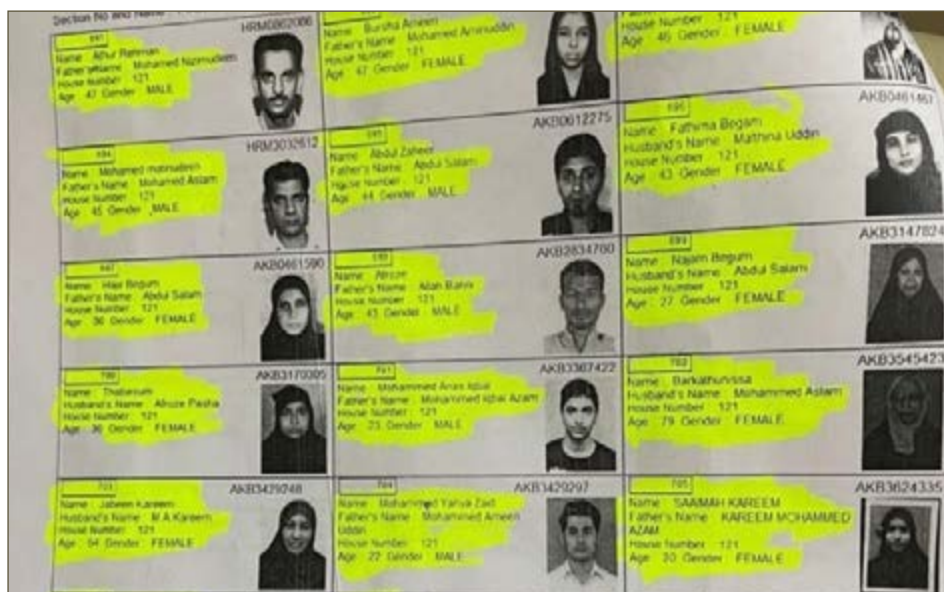 Section No and Name
691
HRM0862066
Name : Afijur Rehman
Father's Name : Mohamed Nizimudeen
House Number : 121
Age : 47 Gender : MALE
Name : Bursha Ameen
Father's Name : Mohamed Aminuddin
House Number : 121
Age : 47 Gender : FEMALE
House Number : 121
Age : 46 Gender : FEMALE
694
HRM3032612
Name : Mohamed
Father's Name : Mohamed Aslam
House Number : 121
Age : 45 Gender : MALE
695
AKB0612275
Name : Abdul Zaheer
Father's Name : Abdul Salam
House Number : 121
Age : 44 Gender : MALE
696
AKB0461467
Name : Fathima Begam
Husband's Name : Mathina Uddin
House Number : 121
Age : 43 Gender : FEMALE
697
AKB0461590
Name : Begum
Father's Name : Abdul Salam
House Number : 121
Age : 36 Gender : FEMALE
698
AKB2834760
Name : Afroze
Father's Name : Allah Bakhi
House Number : 121
Age : 43 Gender : MALE
699
AKB3147824
Name : Najam Begum
Husband's Name : Abdul Salam
House Number : 121
Age : 27 Gender : FEMALE
700
AKB3170305
Name :
Husband's Name : Afroze Pasha
House Number : 121
Age : 36 Gender : FEMALE
701
AKB3367422
Name : Mohammed Anas Iqbal
Father's Name : Mohammed Iqbal Azam
House Number : 121
Age : 23 Gender : MALE
702
AKB3545423
Name : Barkathunvissa
Husband's Name : Mohammed Aslam
House Number : 121
Age : 79 Gender : FEMALE
703
AKB3429248
Name : Jabeen Kareem
Husband's Name : M A Kareem
House Number : 121
Age : 64 Gender : FEMALE
704
AKB3429297
Name : Mohammed Yahya Zaid
Father's Name : Mohammed Ameen
Uddin
House Number : 121
Age : 22 Gender : MALE
705
AKB3624335
Name : SAAIMAH KAREEM
Father's Name : KAREEM MOHAMMED
AZAM
House Number : 121
Age : 20 Gender : FEMALE